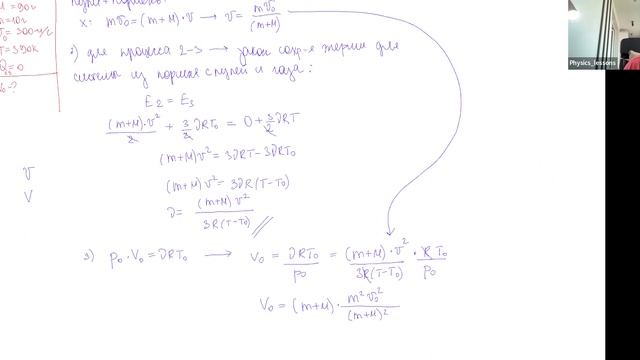 M = 90г
m = 10г
v₀ = 300 м/с
T = 390К
Q = 0
V₀ - ?
x: mv₀ = (m+M)·v → v = mv₀/(m+M)
2) для процесса 2-3 → закон сохр-я энергии для
системы из поршня с пулей и газа:
E₂ = E₃
(m+M)·v²/2 + 3/2 νRT₀ = 0 + 3/2 νRT
(m+M)v² = 3νRT - 3νRT₀
(m+M)v² = 3νR(T-T₀)
ν = (m+M)v²/3R(T-T₀)
v
V
3) p₀·V₀ = νRT₀ → V₀ = νRT₀/p₀ = (m+M)·v²/3R(T-T₀) · RT₀/p₀
V₀ = (m+M)·m²v₀²/(m+M)²
Physics_lessons